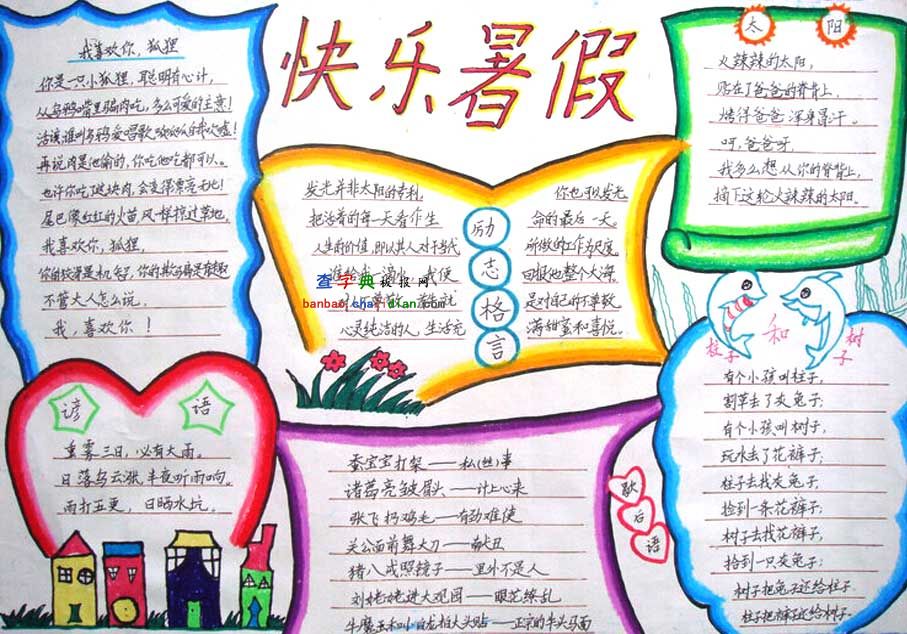 快乐暑假
我喜欢你,狐狸
你是一只小狐狸,聪明有心计,
从乌鸦嘴里骗肉吃,多么可爱的主意!
活该,谁叫乌鸦爱唱歌,呱呱呱自我吹嘘!
再说肉是他偷的,你吃他吃都可以。
也许你吃了这块肉,会变得漂亮无比!
尾巴像红红的火苗,风一样掠过草地。
我喜欢你,狐狸,
你的狡猾是机智,你的欺骗是有趣
不管大人怎么说,
我,喜欢你!
励志格言
发光并非太阳的专利, 你也可以发光。
把活着的每一天看作生 命的最后一天。
人生的价值,即以其人对于当代 所做的工作为尺度。
谁给我一滴水,我便 回报他整个大海。
是对自己的不尊敬。
心灵纯洁的人,生活充 满甜蜜和喜悦。
查字典板报网
banbao.chazidian.com
太阳
火辣辣的太阳,
贴在了爸爸的脊背上,
烤得爸爸浑身冒汗。
呵,爸爸呀
我多么想从你的脊背上,
摘下这轮火辣辣的太阳。
谚语
重雾三日,必有大雨。
日落乌云涨,半夜听雨响。
雨打五更,日晒水坑。
歇后语
蚕宝宝打架——私(丝)事
诸葛亮皱眉头——计上心来
张飞扔鸡毛——有劲难使
关公面前舞大刀——献丑
猪八戒照镜子——里外不是人
刘姥姥进大观园——眼花缭乱
牛魔王和小白龙拍大头贴——正宗的牛头马面
柱子和树子
有个小孩叫柱子,
割草去了灰兔子;
有个小孩叫树子,
玩水去了花裤子;
柱子去找灰兔子,
捡到一条花裤子;
树子去找花裤子,
拾到一只灰兔子;
树子把兔子还给柱子
柱子把裤子还给树子.